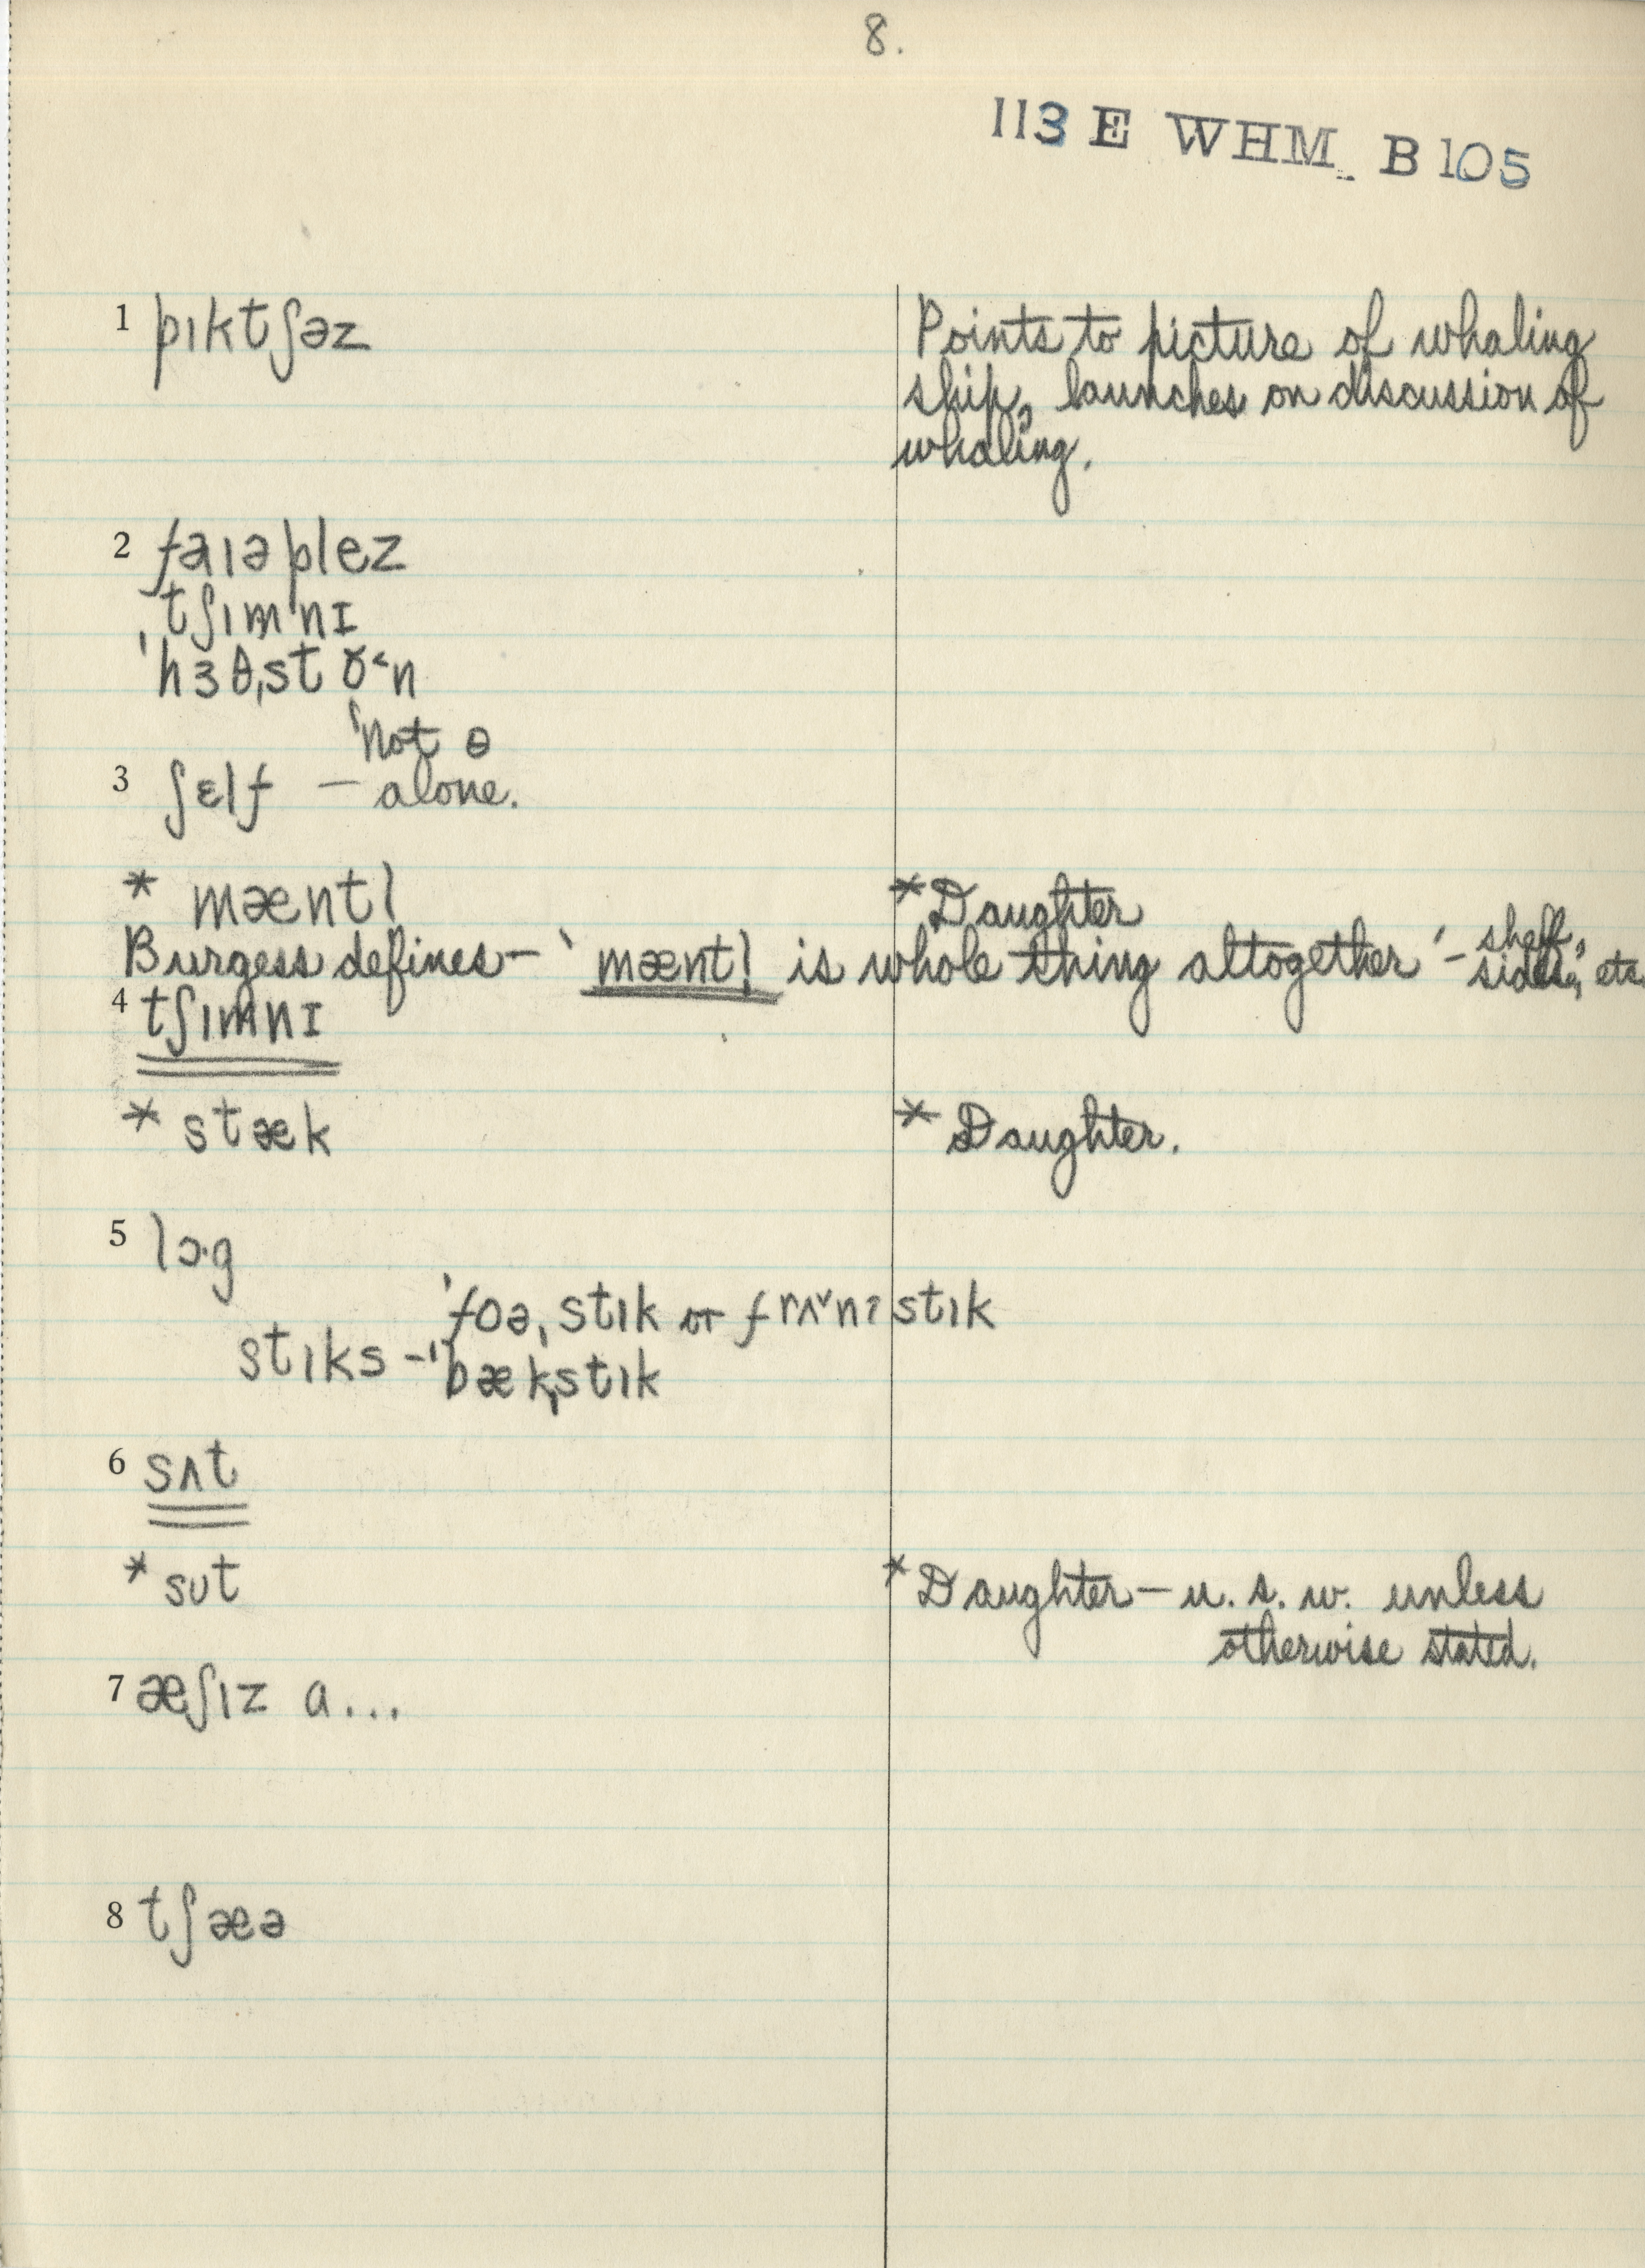 8.
113 E WHM B 105
1 pıktʃəz
Points to picture of whaling
ship, launches on discussion of
whaling.
2 faıəplez
'tʃım'nɪ
'hɜθˌst
not θ
3 ʃɛlf – alone.
* mæntl
* Daughter
Burgess defines – ' mæntl is whole thing altogether ' –
etc
4 tʃımnɪ
* stæk
* Daughter.
5 lɔ·g
'foəˌstık or frʌ˅nʔstık
stıks – 'bækˌstık
6 sʌt
* sut
* Daughter – u. s. w. unless
otherwise stated.
7 æʃız a...
8 tʃæə